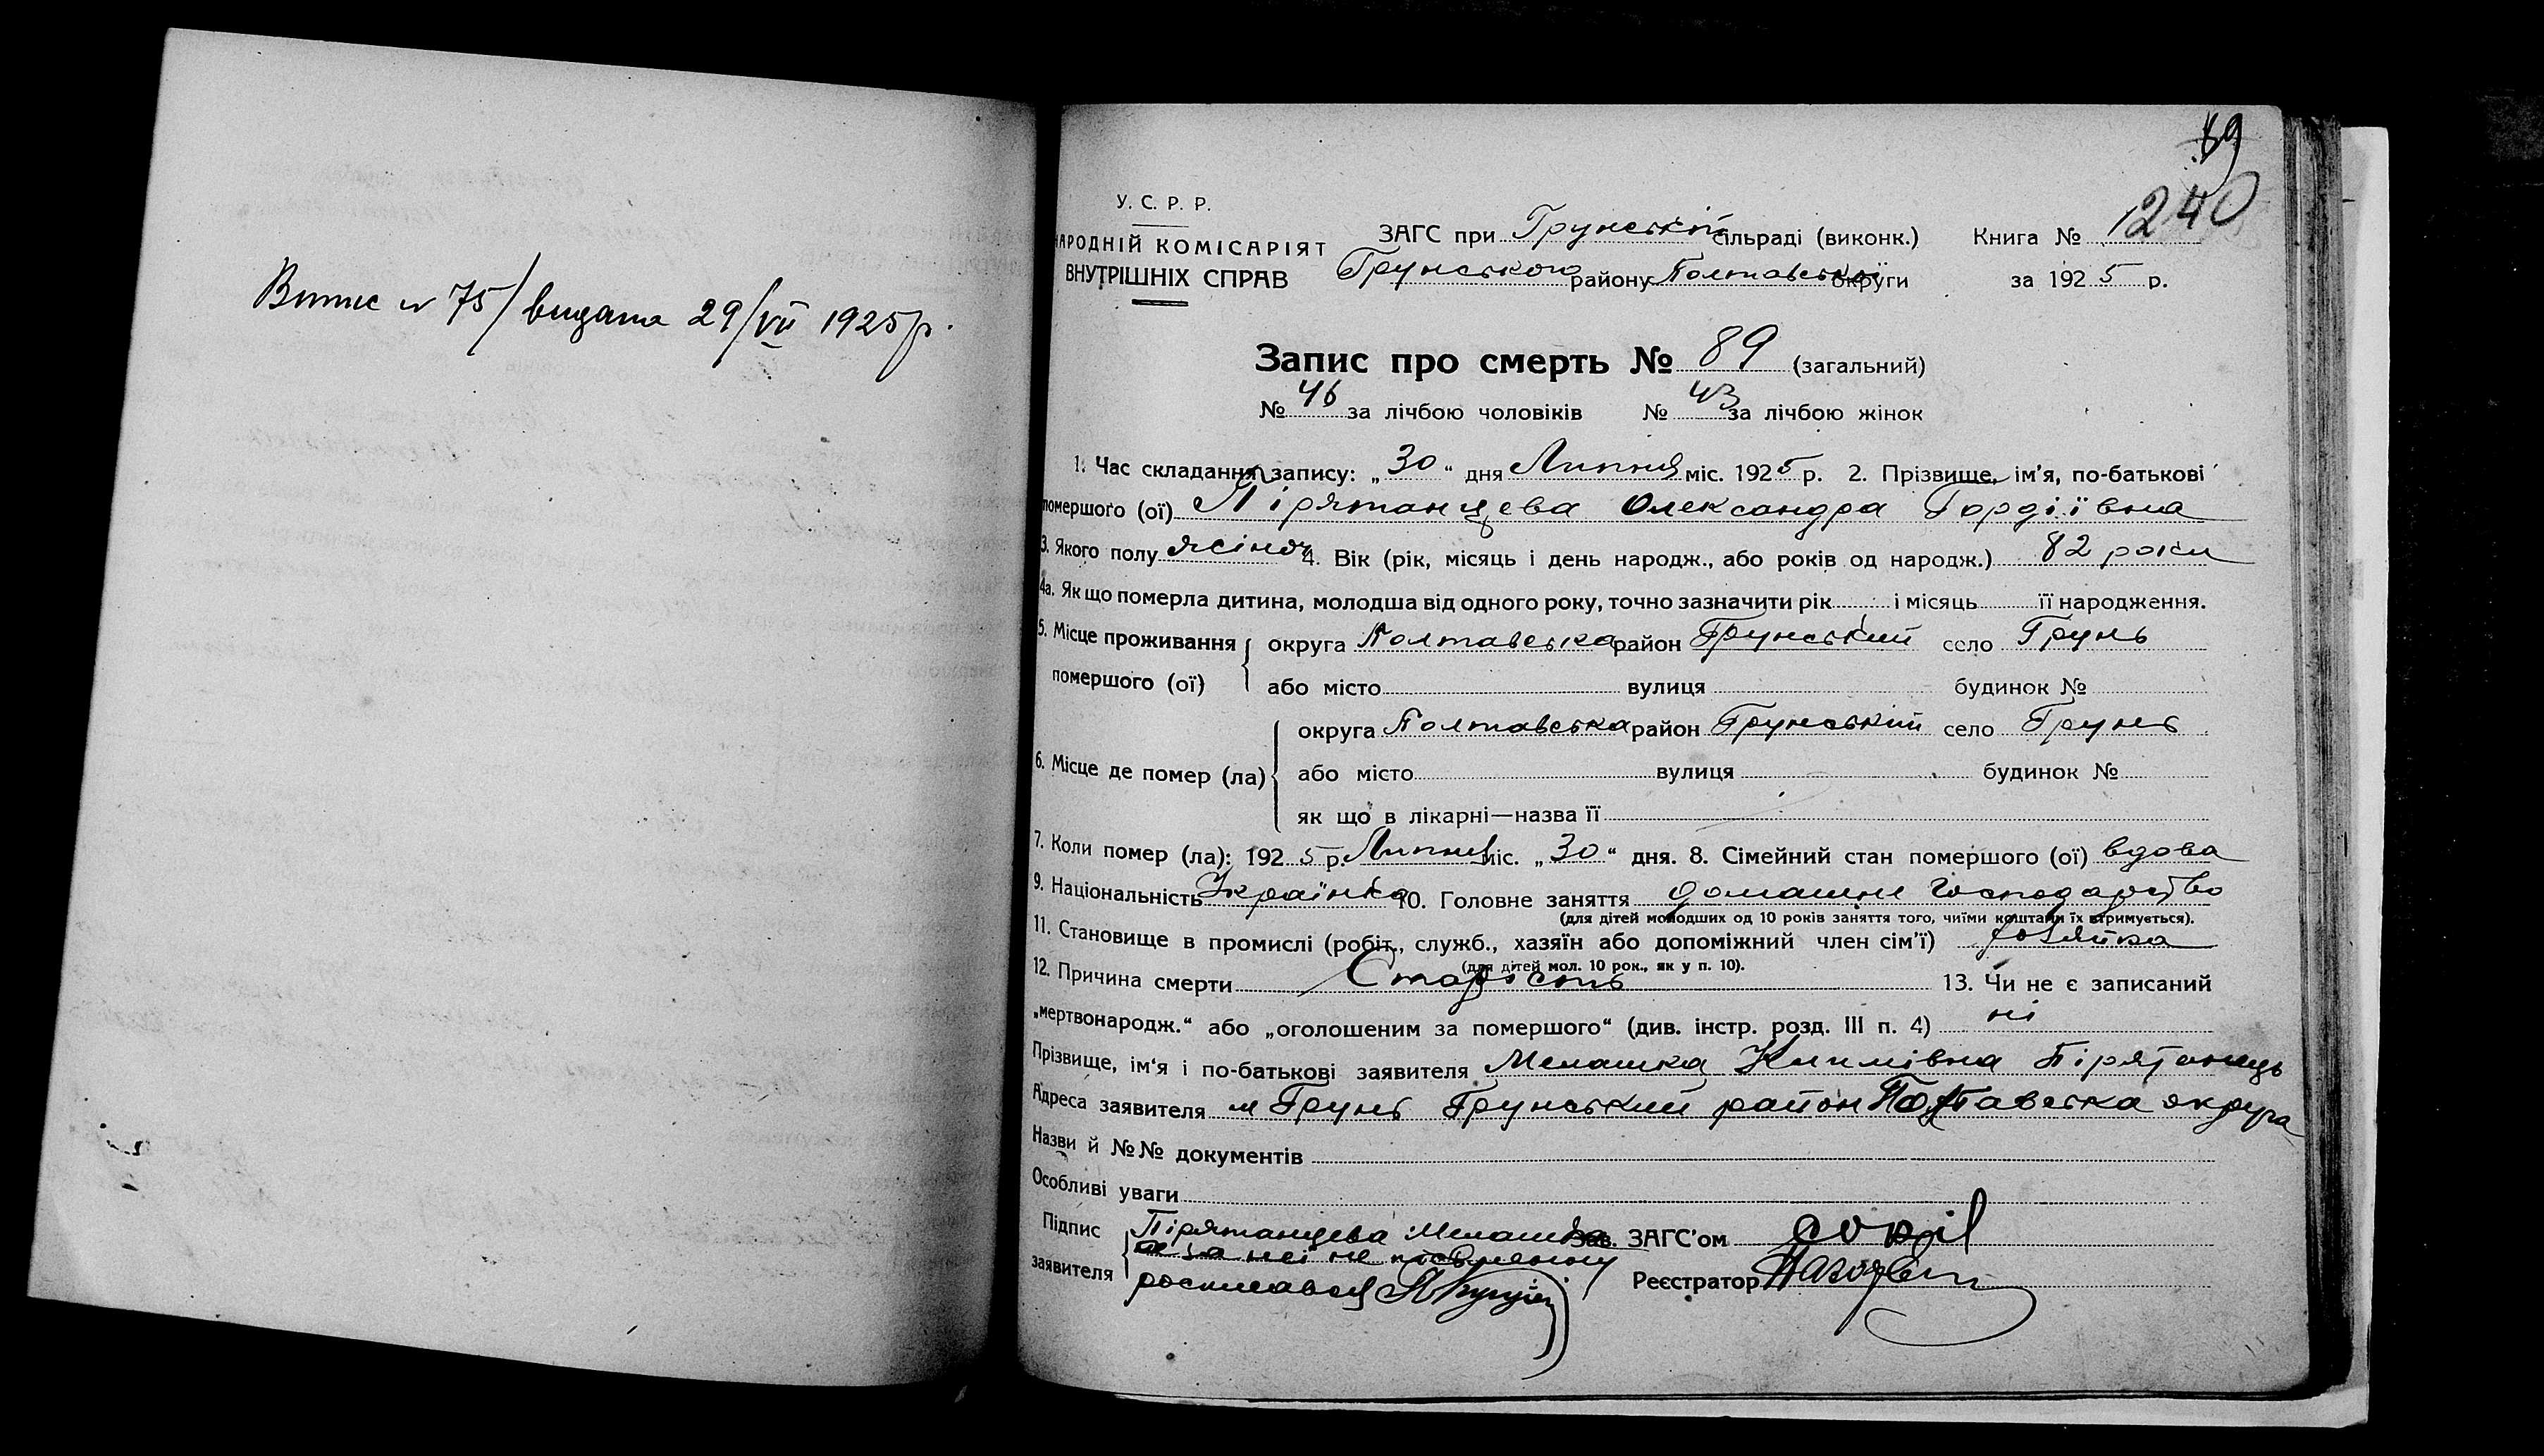 Витис № 75/ видана 29/VII 1925 р.
89
1240
У. С. Р. Р.
НАРОДНІЙ КОМІСАРІЯТ
ВНУТРІШНІХ СПРАВ
ЗАГС при Грунській сільраді (виконк.) Книга №
Грунського району Полтавської округи за 1925 р.
Запис про смерть № 89 (загальний)
№ 46 за лічбою чоловіків № 43 за лічбою жінок
1. Час складання запису: „30“ дня Липня міс. 1925 р. 2. Прізвище, ім'я, по-батькові
помершого (ої) Пірятанцева Олександра Гордіївна
3. Якого полу жіноч 4. Вік (рік, місяць і день народж., або років од народж.) 82 роки
4а. Як що померла дитина, молодша від одного року, точно зазначити рік і місяць її народження.
5. Місце проживання помершого (ої) округа Полтавська район Грунський село Грунь
або місто вулиця будинок №
6. Місце де помер (ла) округа Полтавська район Грунський село Грунь
або місто вулиця будинок №
як що в лікарні—назва її
7. Коли помер (ла): 1925 р. Липня міс. „30“ дня. 8. Сімейний стан помершого (ої) вдова
9. Національність Українка 10. Головне заняття домашне господарство
(для дітей молодших од 10 років заняття того, чиїми коштами їх втримується).
11. Становище в промислі (робіт., служб., хазяїн або допоміжний член сім'ї) хозяйка
(для дітей мол. 10 рок., як у п. 10).
12. Причина смерти Старість 13. Чи не є записаний
„мертвонародж.“ або „оголошеним за помершого“ (див. інстр. розд. III п. 4) ні
Прізвище, ім'я і по-батькові заявителя Мелашка Климівна Пірятанець
Адреса заявителя м Грунь Грунський район Полтавська округа
Назви й №№ документів
Особливі уваги
Підпис заявителя Пірятанцева Мелашка Зав. ЗАГС'ом
а за неі не письменну
росписався Реєстратор